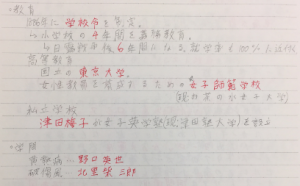 ・教育
に学校令を制定。
小学校の4年間を義務教育。
6年間になる 就学率も100%に近付く
高等教育
国立の東京大学。
女性教員を養成するための女子師範学校
(現お茶の水女子大学)
私立学校
津田梅子が女子英学塾(現津田塾大学)を設立
・学問
黄熱病→野口英世
破傷風→北里柴三郎